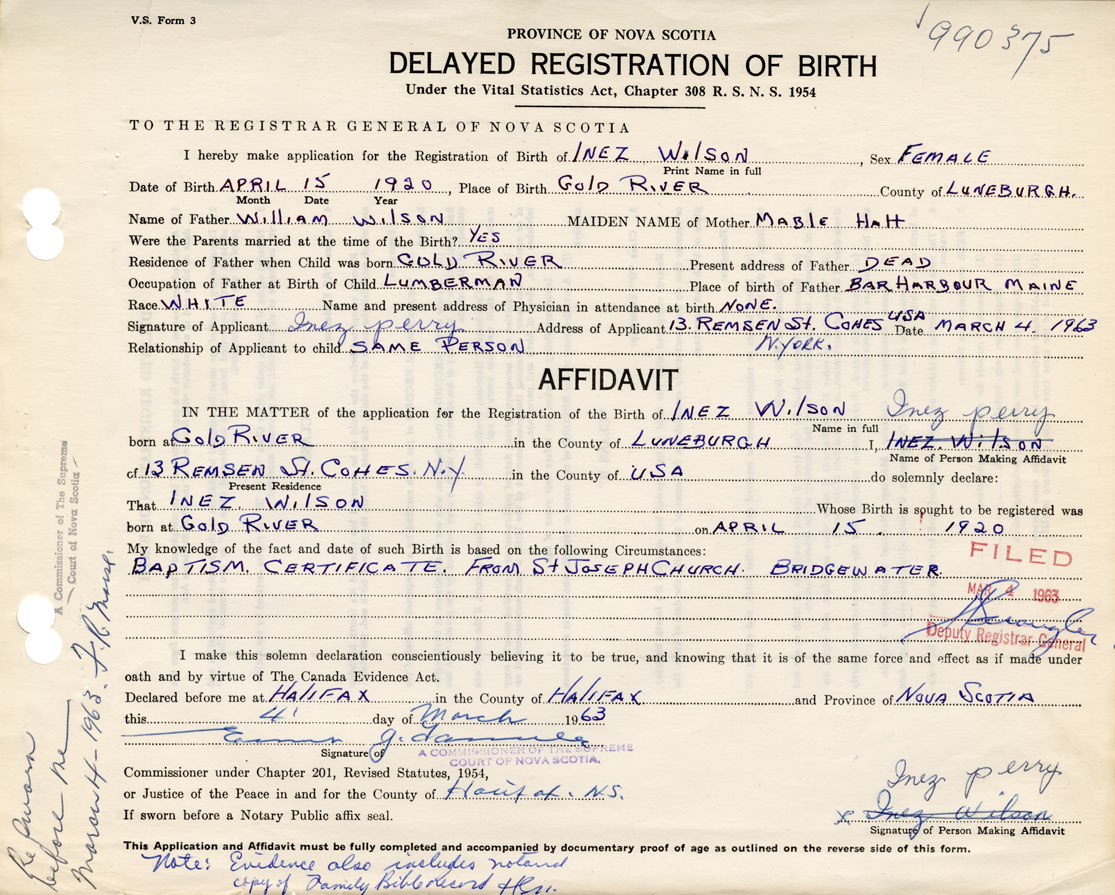 V.S. Form 3
990375
PROVINCE OF NOVA SCOTIA
DELAYED REGISTRATION OF BIRTH
Under the Vital Statistics Act, Chapter 308 R. S. N. S. 1954
TO THE REGISTRAR GENERAL OF NOVA SCOTIA
I hereby make application for the Registration of Birth of INEZ WILSON, Sex FEMALE
Print Name in full
Date of Birth APRIL 15 1920, Place of Birth GOLD RIVER County of LUNEBURGH.
Month Date Year
Name of Father WILLIAM WILSON MAIDEN NAME of Mother MABLE HATT
Were the Parents married at the time of the Birth? YES
Residence of Father when Child was born GOLD RIVER Present address of Father DEAD
Occupation of Father at Birth of Child LUMBERMAN Place of birth of Father BAR HARBOUR MAINE
Race WHITE Name and present address of Physician in attendance at birth NONE.
Signature of Applicant Inez perry Address of Applicant 13. REMSEN St. COHES USA Date MARCH 4. 1963
Relationship of Applicant to child SAME PERSON N.YORK.
AFFIDAVIT
IN THE MATTER of the application for the Registration of the Birth of INEZ WILSON Inez perry
Name in full
born at GOLD RIVER in the County of LUNEBURGH I, INEZ. WILSON
Name of Person Making Affidavit
of 13 REMSEN St. COHES. N.Y in the County of USA do solemnly declare:
Present Residence
That INEZ. WILSON Whose Birth is sought to be registered was
born at GOLD RIVER on APRIL 15. 1920
My knowledge of the fact and date of such Birth is based on the following Circumstances:
BAPTISM. CERTIFICATE. FROM St JOSEPH CHURCH. BRIDGEWATER.
FILED
MAR 4 1963
Deputy Registrar General
I make this solemn declaration conscientiously believing it to be true, and knowing that it is of the same force and effect as if made under
oath and by virtue of The Canada Evidence Act.
Declared before me at HALIFAX in the County of HALIFAX and Province of NOVA SCOTIA
this 4 day of March 1963
Signature of
A COMMISSIONER OF THE SUPREME
COURT OF NOVA SCOTIA.
Commissioner under Chapter 201, Revised Statutes, 1954,
or Justice of the Peace in and for the County of Halifax. N.S.
If sworn before a Notary Public affix seal.
Inez perry
x Inez Wilson
Signature of Person Making Affidavit
This Application and Affidavit must be fully completed and accompanied by documentary proof of age as outlined on the reverse side of this form.
Note: Evidence also includes
copy of Family Bible record
A Commissioner of The Supreme
Court of Nova Scotia
before me
March 4 - 1963.